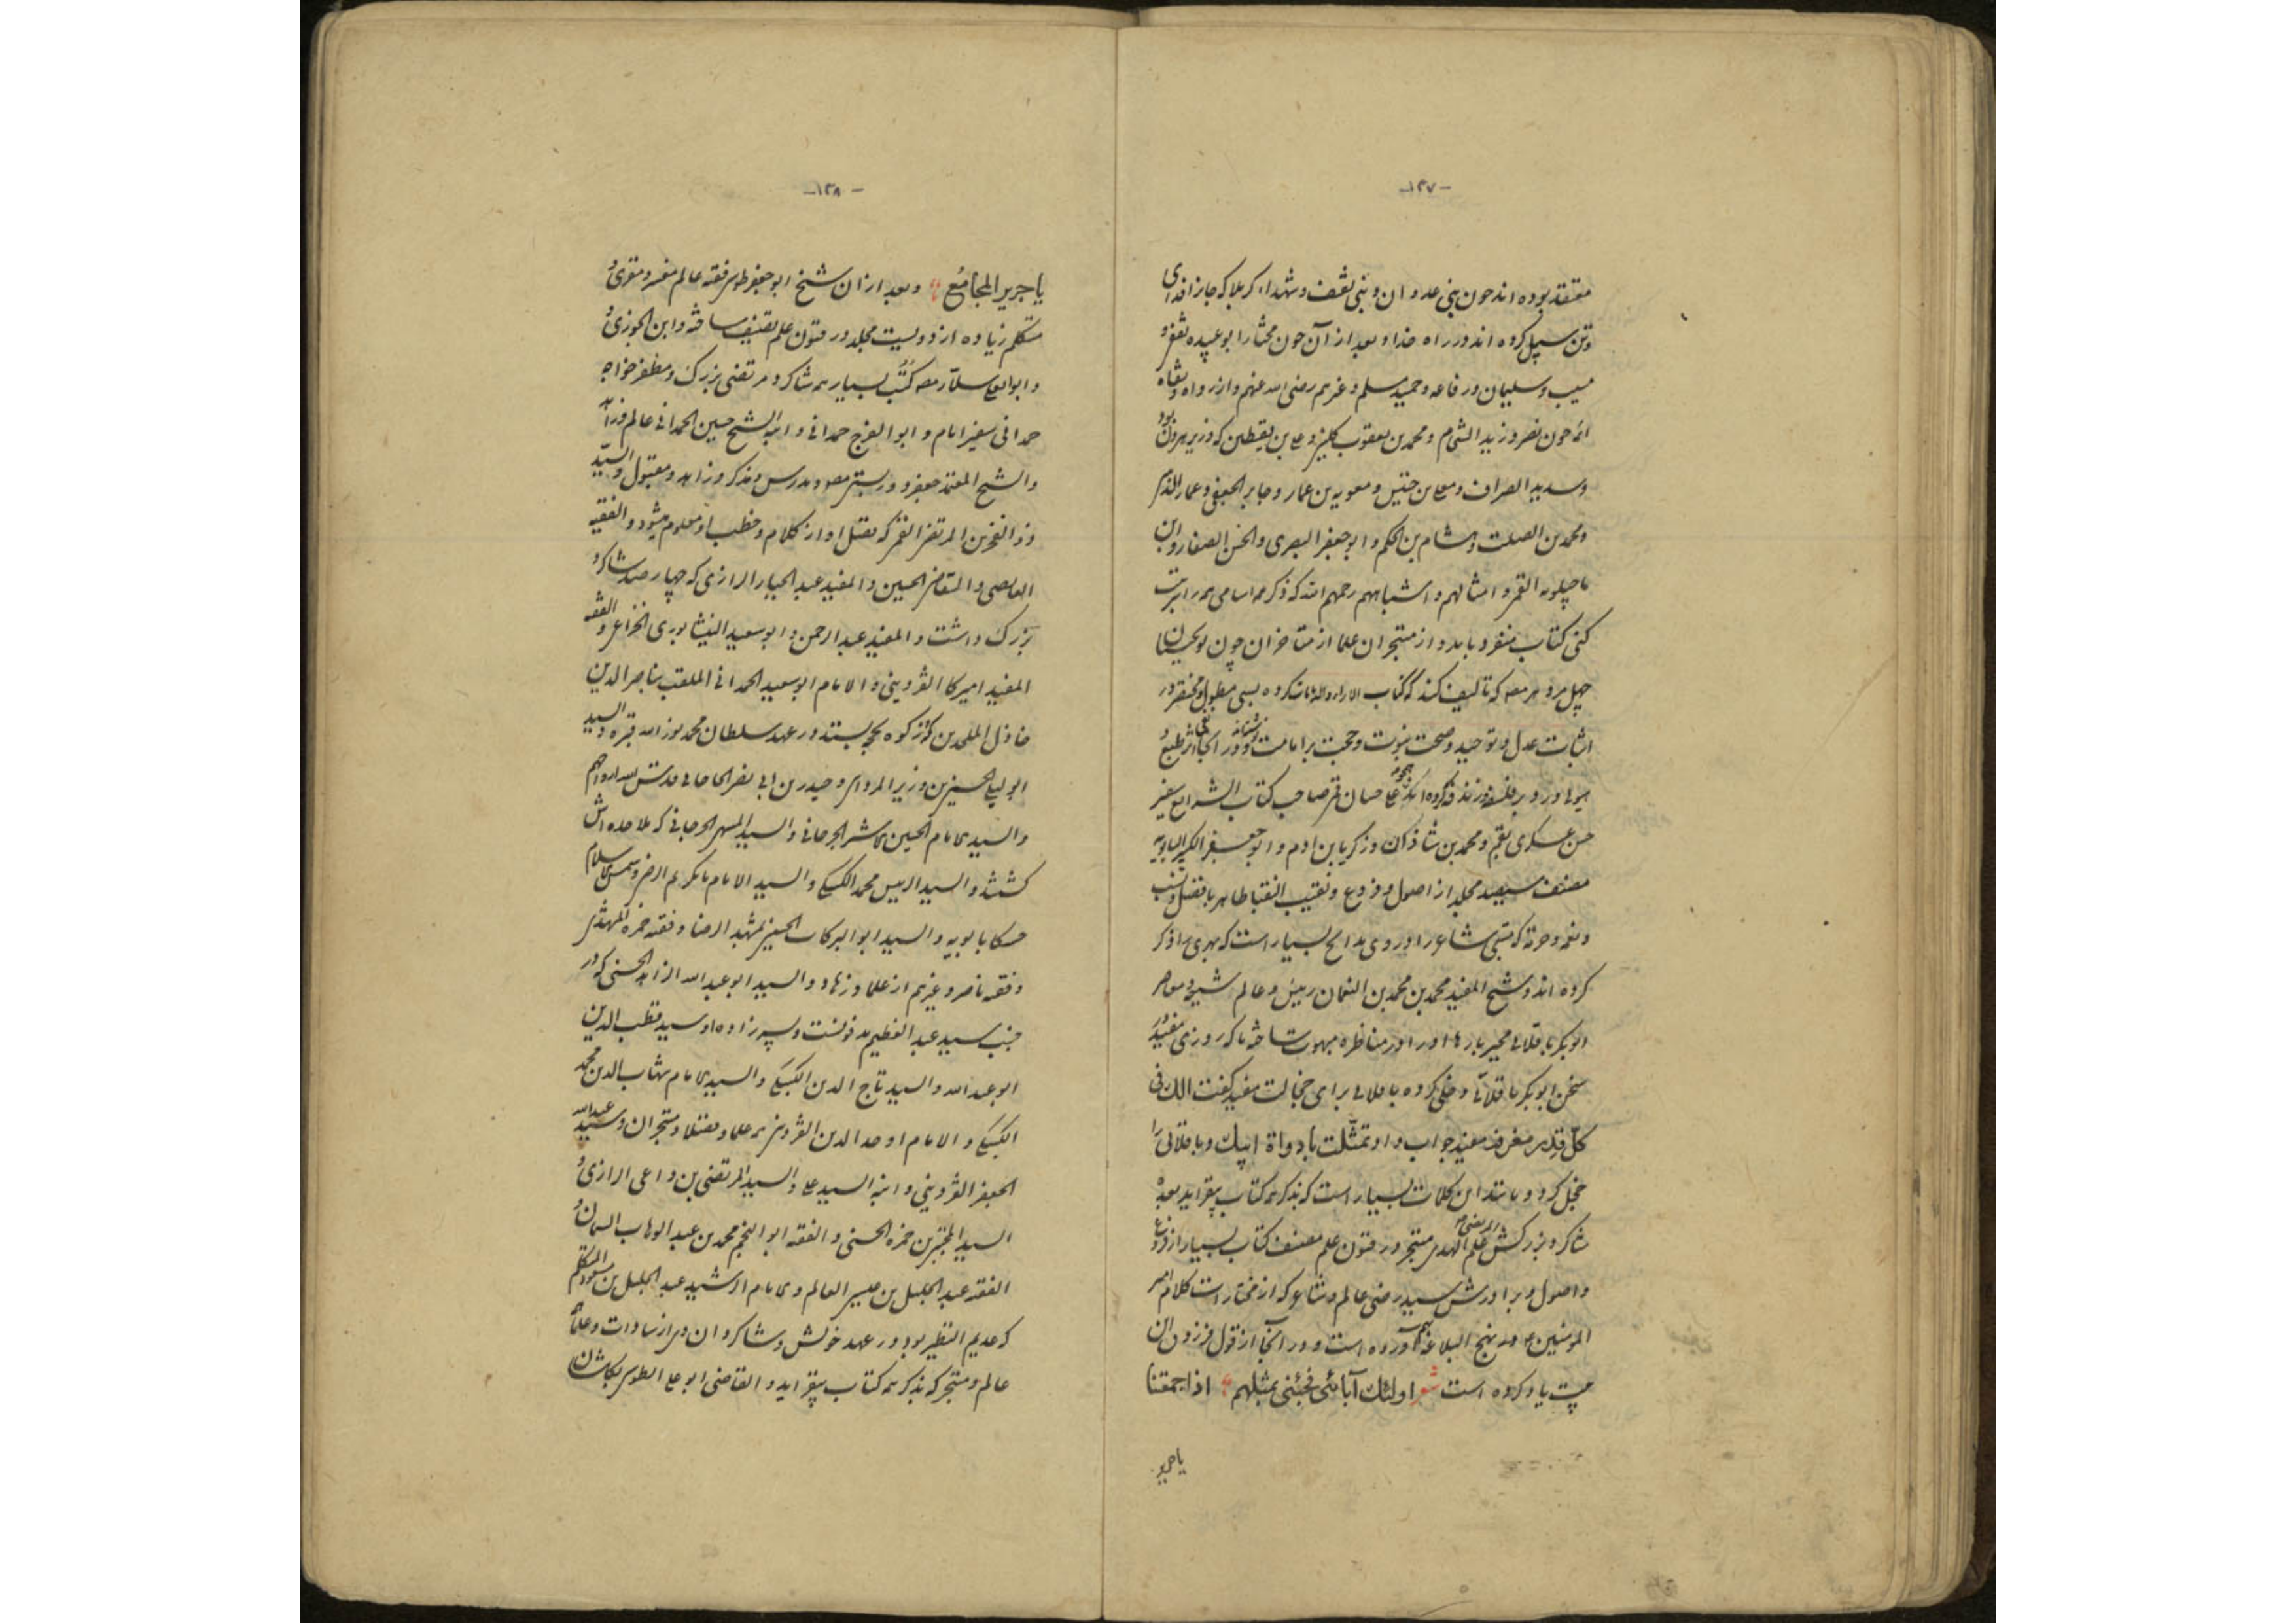 -۱۳۷-
معتقد بوده اند چون بنی عدوان و بنی ثقیف و شهداء کربلا که جانرا فدای
و تن سبیل کرده اند در راه خدا و بعد از آن چون مختار ابو عبیده ثقفی و
مسیب و سلیمان و رفاعه و حمید مسلم و غیرهم رضی الله عنهم و از رواه و ثقاه
ائمه چون نصر و زید الشحام و محمد بن یعقوب کلینی و علی بن یقطین که وزیر هرون بود
و سدید الصراف و معلی بن خنیس و معویه بن عمار و جابر الجعفی و عمار الذهبی
و محمد بن الصلت و هشام بن الحکم و ابو جعفر البصری و الحسن الصفار و ابن
ماجیلویه القمی و امثالهم و اشباههم رحمهم الله که ذکر همه اسامی همه را اثبت
کنی کتاب منفرد باید و از متبحران علما از متاخران چون نوبختیان
چهل مرد همه مصنف که تالیف کنند که کتاب الارا و الدیانات کرده بسی مطول و مختصر در
اثبات عدل و توحید و صحت نبوت و حجت بر امامت نوشته‌اند و در آنجا نفی اثر طبع و
هیولی و رد بر فلسفه و زندقه کرده‌اند و نجوم و علی حسان قمی صاحب کتاب الشرایع سفیر
حسن عسکری بقم و محمد بن شاذان و زکریا بن ادم و ابو جعفر الکبیر البابویه
مصنف سیصد مجلد از اصول و فروع و نقیب النقبا طاهر با فضل و نسب
و نعمه و حرمة که متنبی شاعر را در وی مدایح بسیار است که بهری را ذکر
کرده اند و شیخ المفید محمد بن محمد بن النعمان رییس و عالم شیعه و معاصر
ابوبکر باقلانی مجبر بارها او را در مناظره مبهوت ساخته تا که روزی مفید در
سخن ابوبکر باقلانی دخلی کرده باقلانی برای خجالت مفید گفت الک فی
کلّ قدر مغرفه مفید جواب داد تمثّلت بادواة ابیك و باقلانی را
خجل کرد و مانند این کلمات بسیار است که بذکر همه کتاب بیفزاید بعد ه
شاکرد بزرکش المرتضی علم الهدی متبحر در فنون علم مصنف کتاب بسیار از فروع
و اصول و برادرش سید رضی عالم و شاعر که از مختارات کلام امیر
المومنین ع در نهج البلاغه جمع آورده است و در آنجا از قول فرزدق این
بیت یاد کرده است شعر اولئك آبائی فجئنی بمثلهم اذا جمعتنا
یا جریر
-۱۳۸-
یا جریر المجامُع و بعد از ان شیخ ابو جعفر طوسی فقیه عالم مفسر و مقری و
متکلم زیاده از دویست مجلد در فنون علم تصنیف ساخته و ابن الجوزی و
و ابو یعلی سلّار مصنف کتب بسیار همه شاکرد مرتضی بزرک و مظفر خواجه
حمدانی سفیر امام و ابو الفرج حمدانی و ابنه الشیخ حسین الحمدانی عالم و زاهد
و الشیخ المعتمد جعفر دوریستی مصنف و مدرس و مذکر و زاهد و مقبول و السید
ذو الفخرین المرتضی القمی که فضل او از کلام و خطب او معلوم میشود و الفقیه
القاضی الحسین و المفید عبد الجبار الرازی که چهار صد شاکرد
بزرک داشت و المفید عبد الرحمن و ابو سعید النیشابوری الخزاعی و الفقیه
المفید امیرکا القزوینی و الامام ابو سعید الحمدانی الملقب بناصر الدین
خاذل الملحدین کوز کوه بحجج بستد در عهد سلطان محمد نور الله قبره و السید
ابو لیلی الحسین بن وزیر المرداسی و حیدر بن ابی نصر الجاجانی قدس الله ارواحهم
و السید الامام الحسین الجرجانی و السید الجرجانی که ملاحده اش
کشتند و السید الرییس محمد الکیسکی و السید الامام مانکدیم الرضی و شمس الاسلام
حسکا بابویه و السید ابو البرکات الحسینی بمشهد الرضا و فقیه حمزه المهتدی
و فقیه ناصر و غیرهم از علما و زهاد و السید ابو عبد الله الزاهد الحسنی که در
جنب سید عبد العظیم مدفونست و پسر زاده او سید قطب الدین
ابو عبد الله و السید تاج الدین الکیسکی و السید الامام شهاب الدین محمد
الکیسکی و الامام اوحد الدین القزوینی همه علما و فضلا و متبحران و سید عبد الله
الجعفر القزوینی و ابنه السید علی و السید المرتضی بن داعی الرازی و
السید المجتبی بن حمزه الحسنی و الفقیه ابو النجم محمد بن عبد الوهاب السمان و
الفقیه عبد الجلیل بن عیسی العالم و الامام الرشید عبد الجلیل بن مسعود المتکلم
که عدیم النظیر بود در عهد خویش و شاکردان وی از سادات و علما
عالم و متبحر که بذکر همه کتاب بیفزاید و القاضی ابو علی الطوسی بکاشان